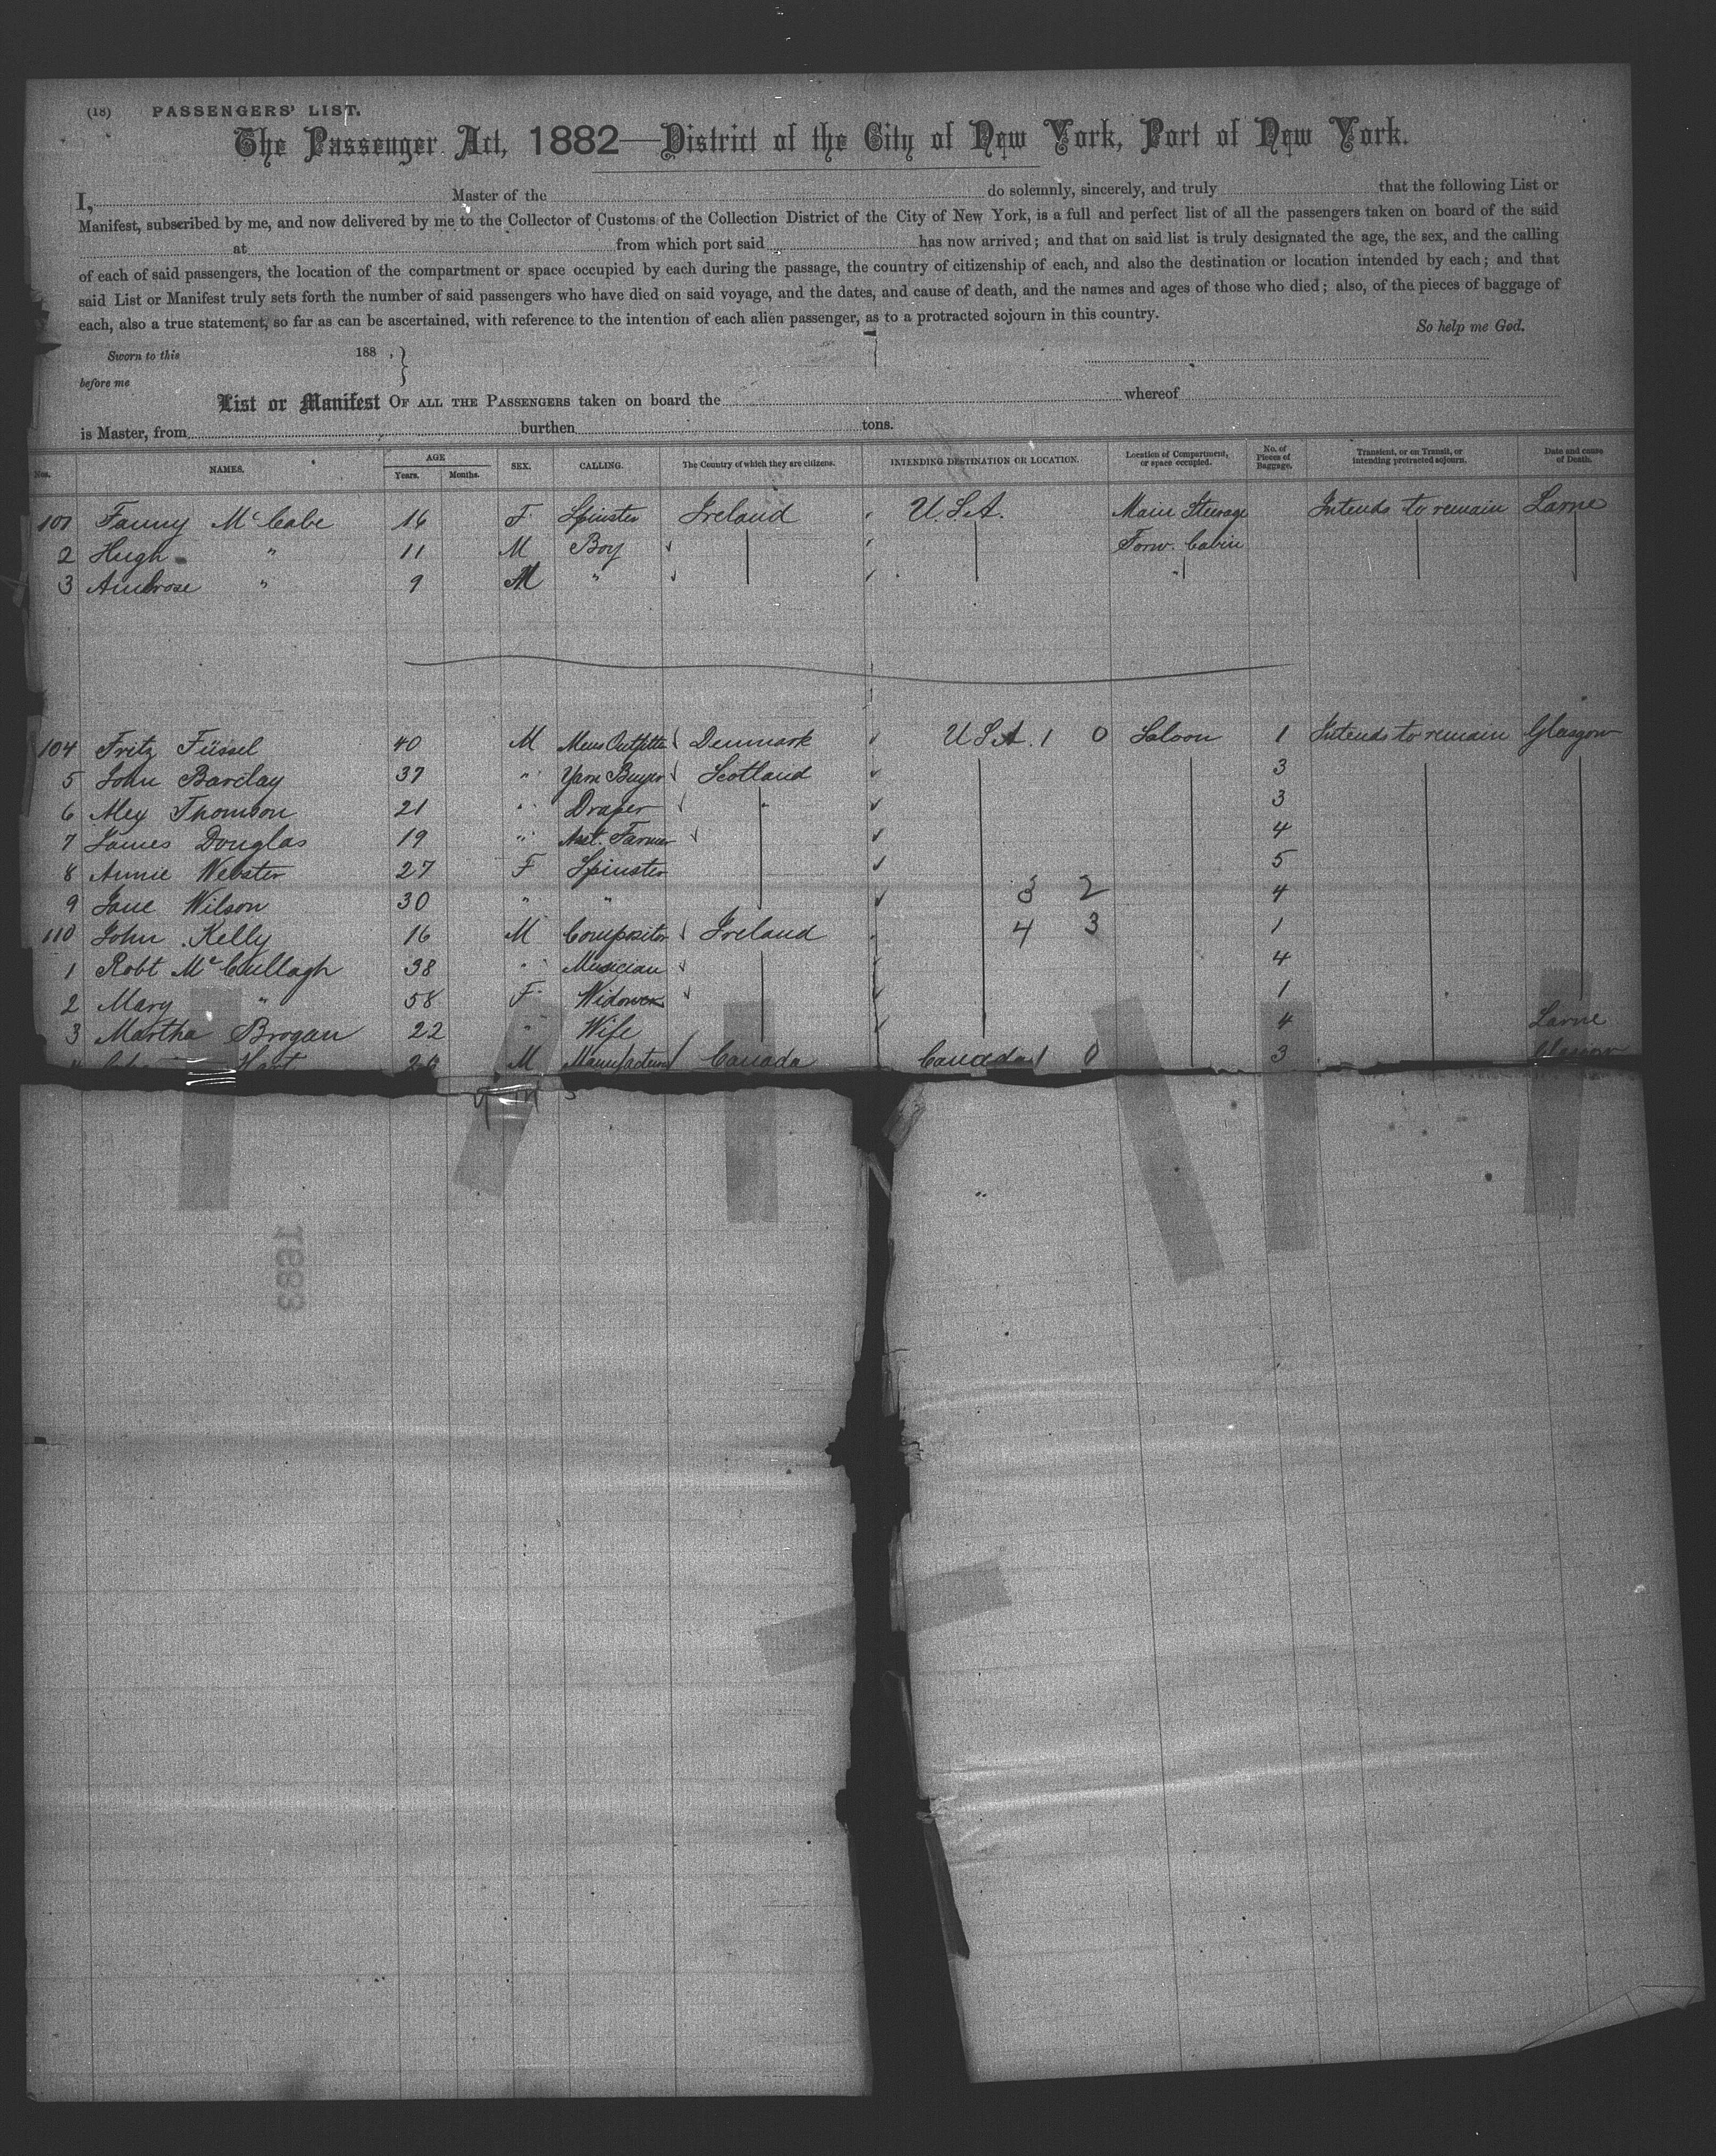 (18) PASSENGERS' LIST.
The Passenger Act, 1882—District of the City of New York, Port of New York.
I, Master of the do solemnly, sincerely, and truly that the following List or
Manifest, subscribed by me, and now delivered by me to the Collector of Customs of the Collection District of the City of New York, is a full and perfect list of all the passengers taken on board of the said
at from which port said has now arrived; and that on said list is truly designated the age, the sex, and the calling
of each of said passengers, the location of the compartment or space occupied by each during the passage, the country of citizenship of each, and also the destination or location intended by each; and that
said List or Manifest truly sets forth the number of said passengers who have died on said voyage, and the dates, and cause of death, and the names and ages of those who died; also, of the pieces of baggage of
each, also a true statement, so far as can be ascertained, with reference to the intention of each alien passenger, as to a protracted sojourn in this country.
So help me God.
Sworn to this 188 ,
before me
List or Manifest OF ALL THE PASSENGERS taken on board the whereof
is Master, from burthen tons.
Nos. NAMES. AGE Years. Months. SEX. CALLING. The Country of which they are citizens. INTENDING DESTINATION OR LOCATION. Location of Compartment, or space occupied. No. of Pieces of Baggage. Transient, or on Transit, or intending protracted sojourn. Date and cause of Death.
101 Fanny McCabe 16 F Spinster Ireland U.S.A. Main Steerage Intends to remain Larne
2 Hugh " 11 M Boy Forw. Cabin
3 Ambrose " 9 M " "
104 Fritz Füssel 40 M Mens Outfitter Denmark U.S.A. 1 0 Saloon 1 Intends to remain Glasgow
5 John Barclay 37 " Yarn Buyer Scotland 3
6 Alex Thomson 21 " Draper " 3
7 James Douglas 19 " Asst. Farmer 4
8 Annie Webster 27 F Spinster 5
9 Jane Wilson 30 " " 3 2 4
110 John Kelly 16 M Compositor Ireland 4 3 1
1 Robt McCullagh 38 " Musician 4
2 Mary " 58 F Widow 1
3 Martha Brogan 22 " Wife 4 Larne
Hart 26 M Manufacturer Canada Canada 1 0 3 Glasgow
1683